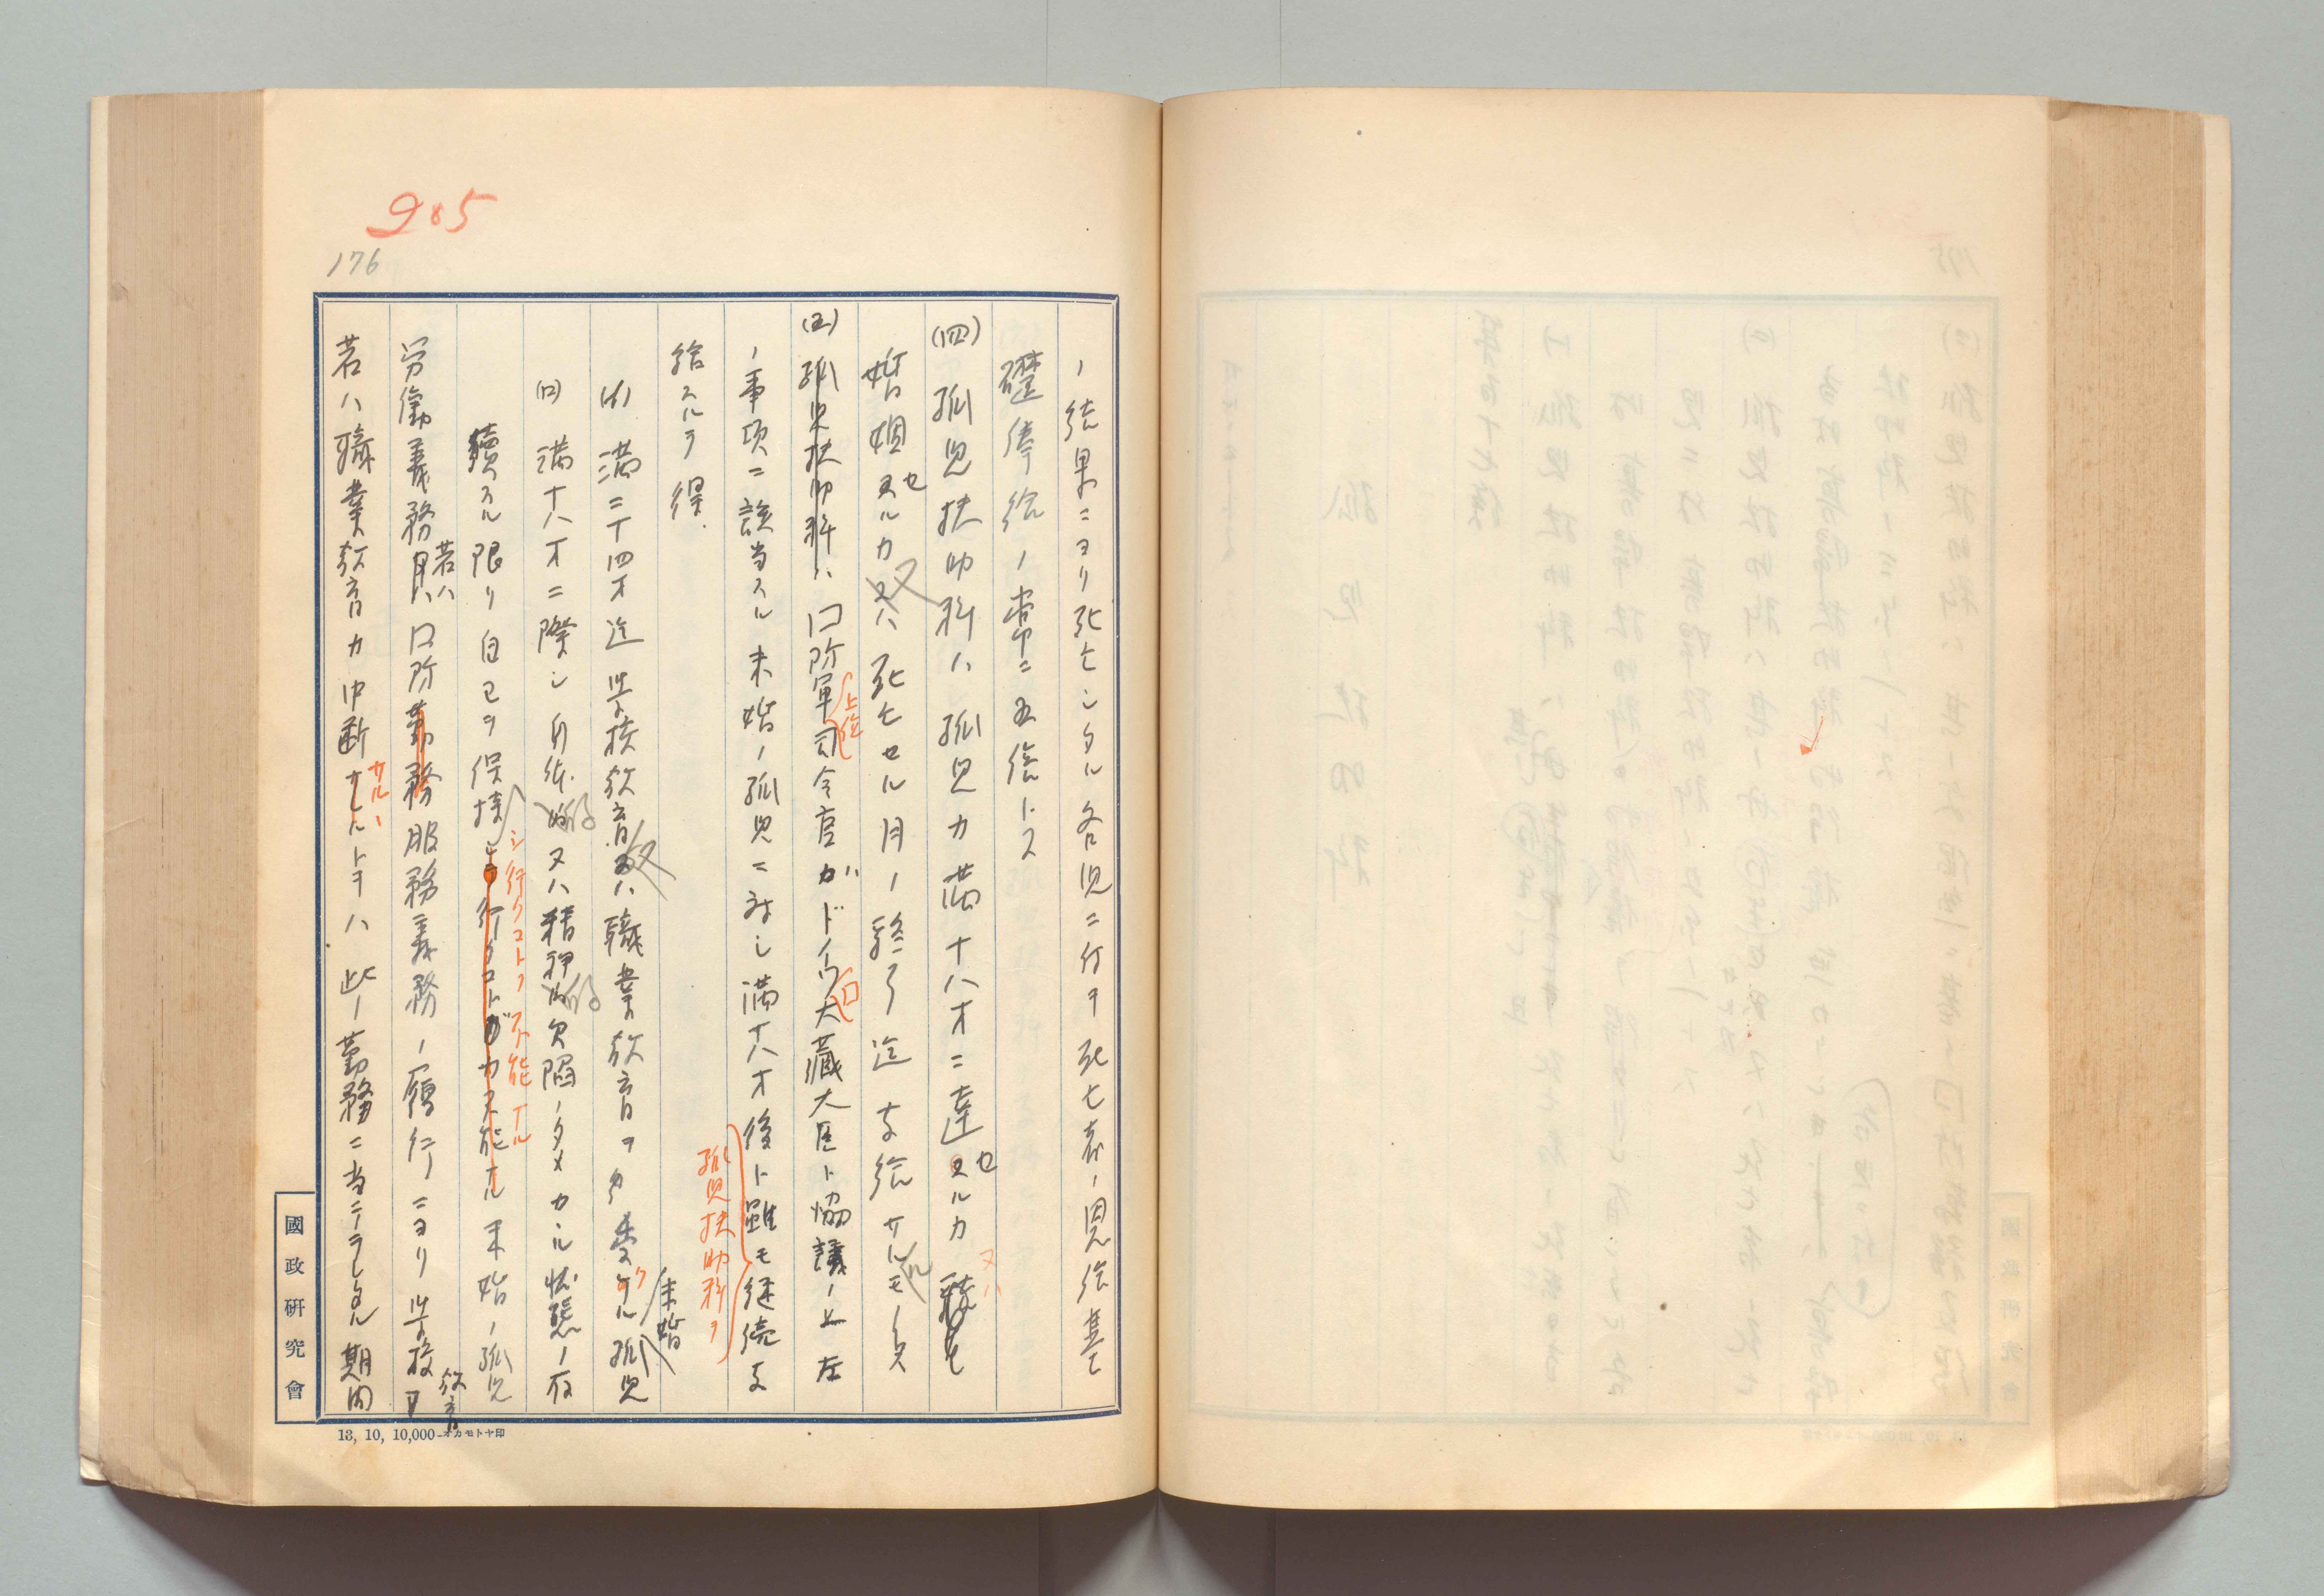 905
176
ノ結果ニヨリ死亡シタル各児ニ付キ死亡者ノ恩給基
礎俸給ノ常ニ五倍トス
(四) 孤児扶助料ハ孤児カ満十八才ニ達スルカ
セ
又ハ
婚姻スルカ又ハ死亡セル月ノ終了迄支給サルルモノトス
セ
又
ル
(五) 孤児扶助料ハ口防軍司令官ガドイツ大蔵大臣ト協議ノ上左
上位
口
ノ事項ニ該当スル未婚ノ孤児ニ対シ満十八才後ト雖モ継続支
孤児扶助料ヲ
給スルヲ得
(イ) 満二十四才迄学校教育又ハ職業教育ヲ受ケル孤児
又
ク
未婚
(ロ) 満十八才ニ際シ身体的又ハ精神的欠陥ノタメカヽル状態ノ存
的
的
続スル限リ自己ヲ保持シ行クコトガ不能ナル未婚ノ孤児
シ行クコトノ不能ナル
労働義務又ハ口防勤務服務義務ノ履行ニヨリ学校
若ハ
教育
若ハ職業教育カ中断サレルトキハ此ノ勤務ニ当テラレタル期間
サルヽ
國政研究會
13, 10, 10,000-オカモトヤ印